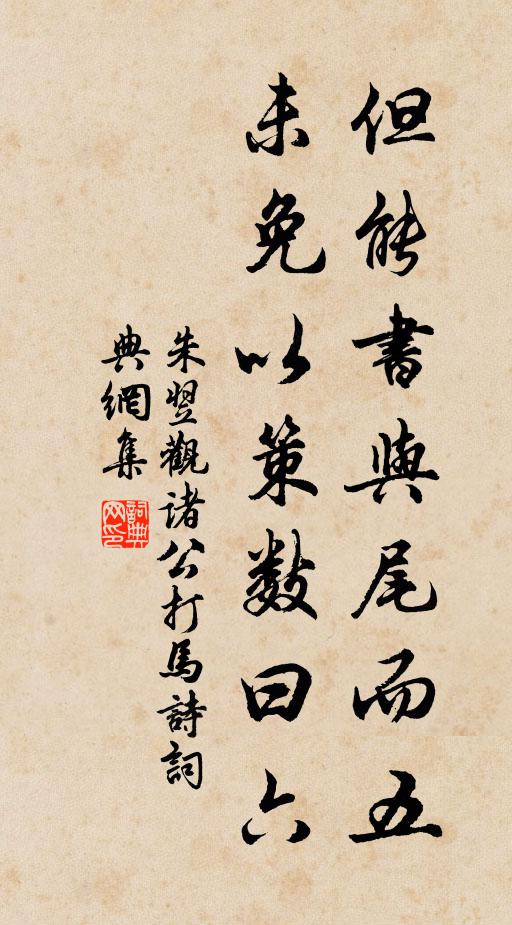 但能書與尾而五
未免以策數曰六
朱翌觀諸公打馬詩詞
典網集
詞典網印